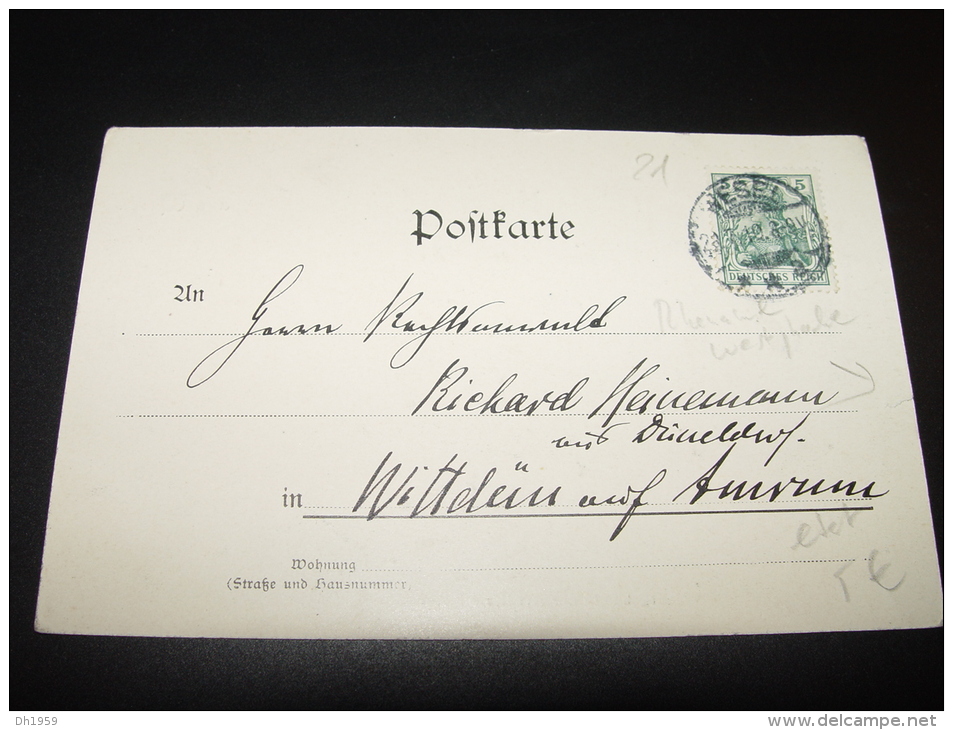 21
Postkarte
5
WESEL
DEUTSCHES REICH
An
Herrn Rechtsanwalt
Richard Heinemann
aus Düsseldorf.
in Wittdün auf Amrum
Wohnung
(Straße und Hausnummer)
5 €
Dh1959
www.delcampe.net